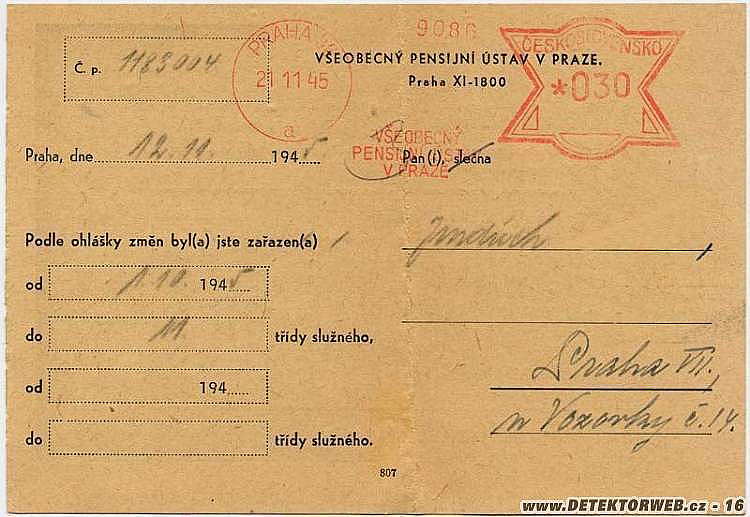 9086
PRAHA
21 11 45
a
ČESKOSLOVENSKO
*030
VŠEOBECNÝ
PENSIJNÍ ÚSTAV
V PRAZE
VŠEOBECNÝ PENSIJNÍ ÚSTAV V PRAZE.
Praha XI-1800
Č. p. 1183004
Praha, dne 12.11. 1945
Pan (í), slečna
Podle ohlášky změn byl(a) jste zařazen(a)
Jindřich
od 1.10. 1945
do 11 třídy služného,
Praha VII.,
od 194
u Vozovky č.14.
do třídy služného.
807
www.DETEKTORWEB.cz - 16